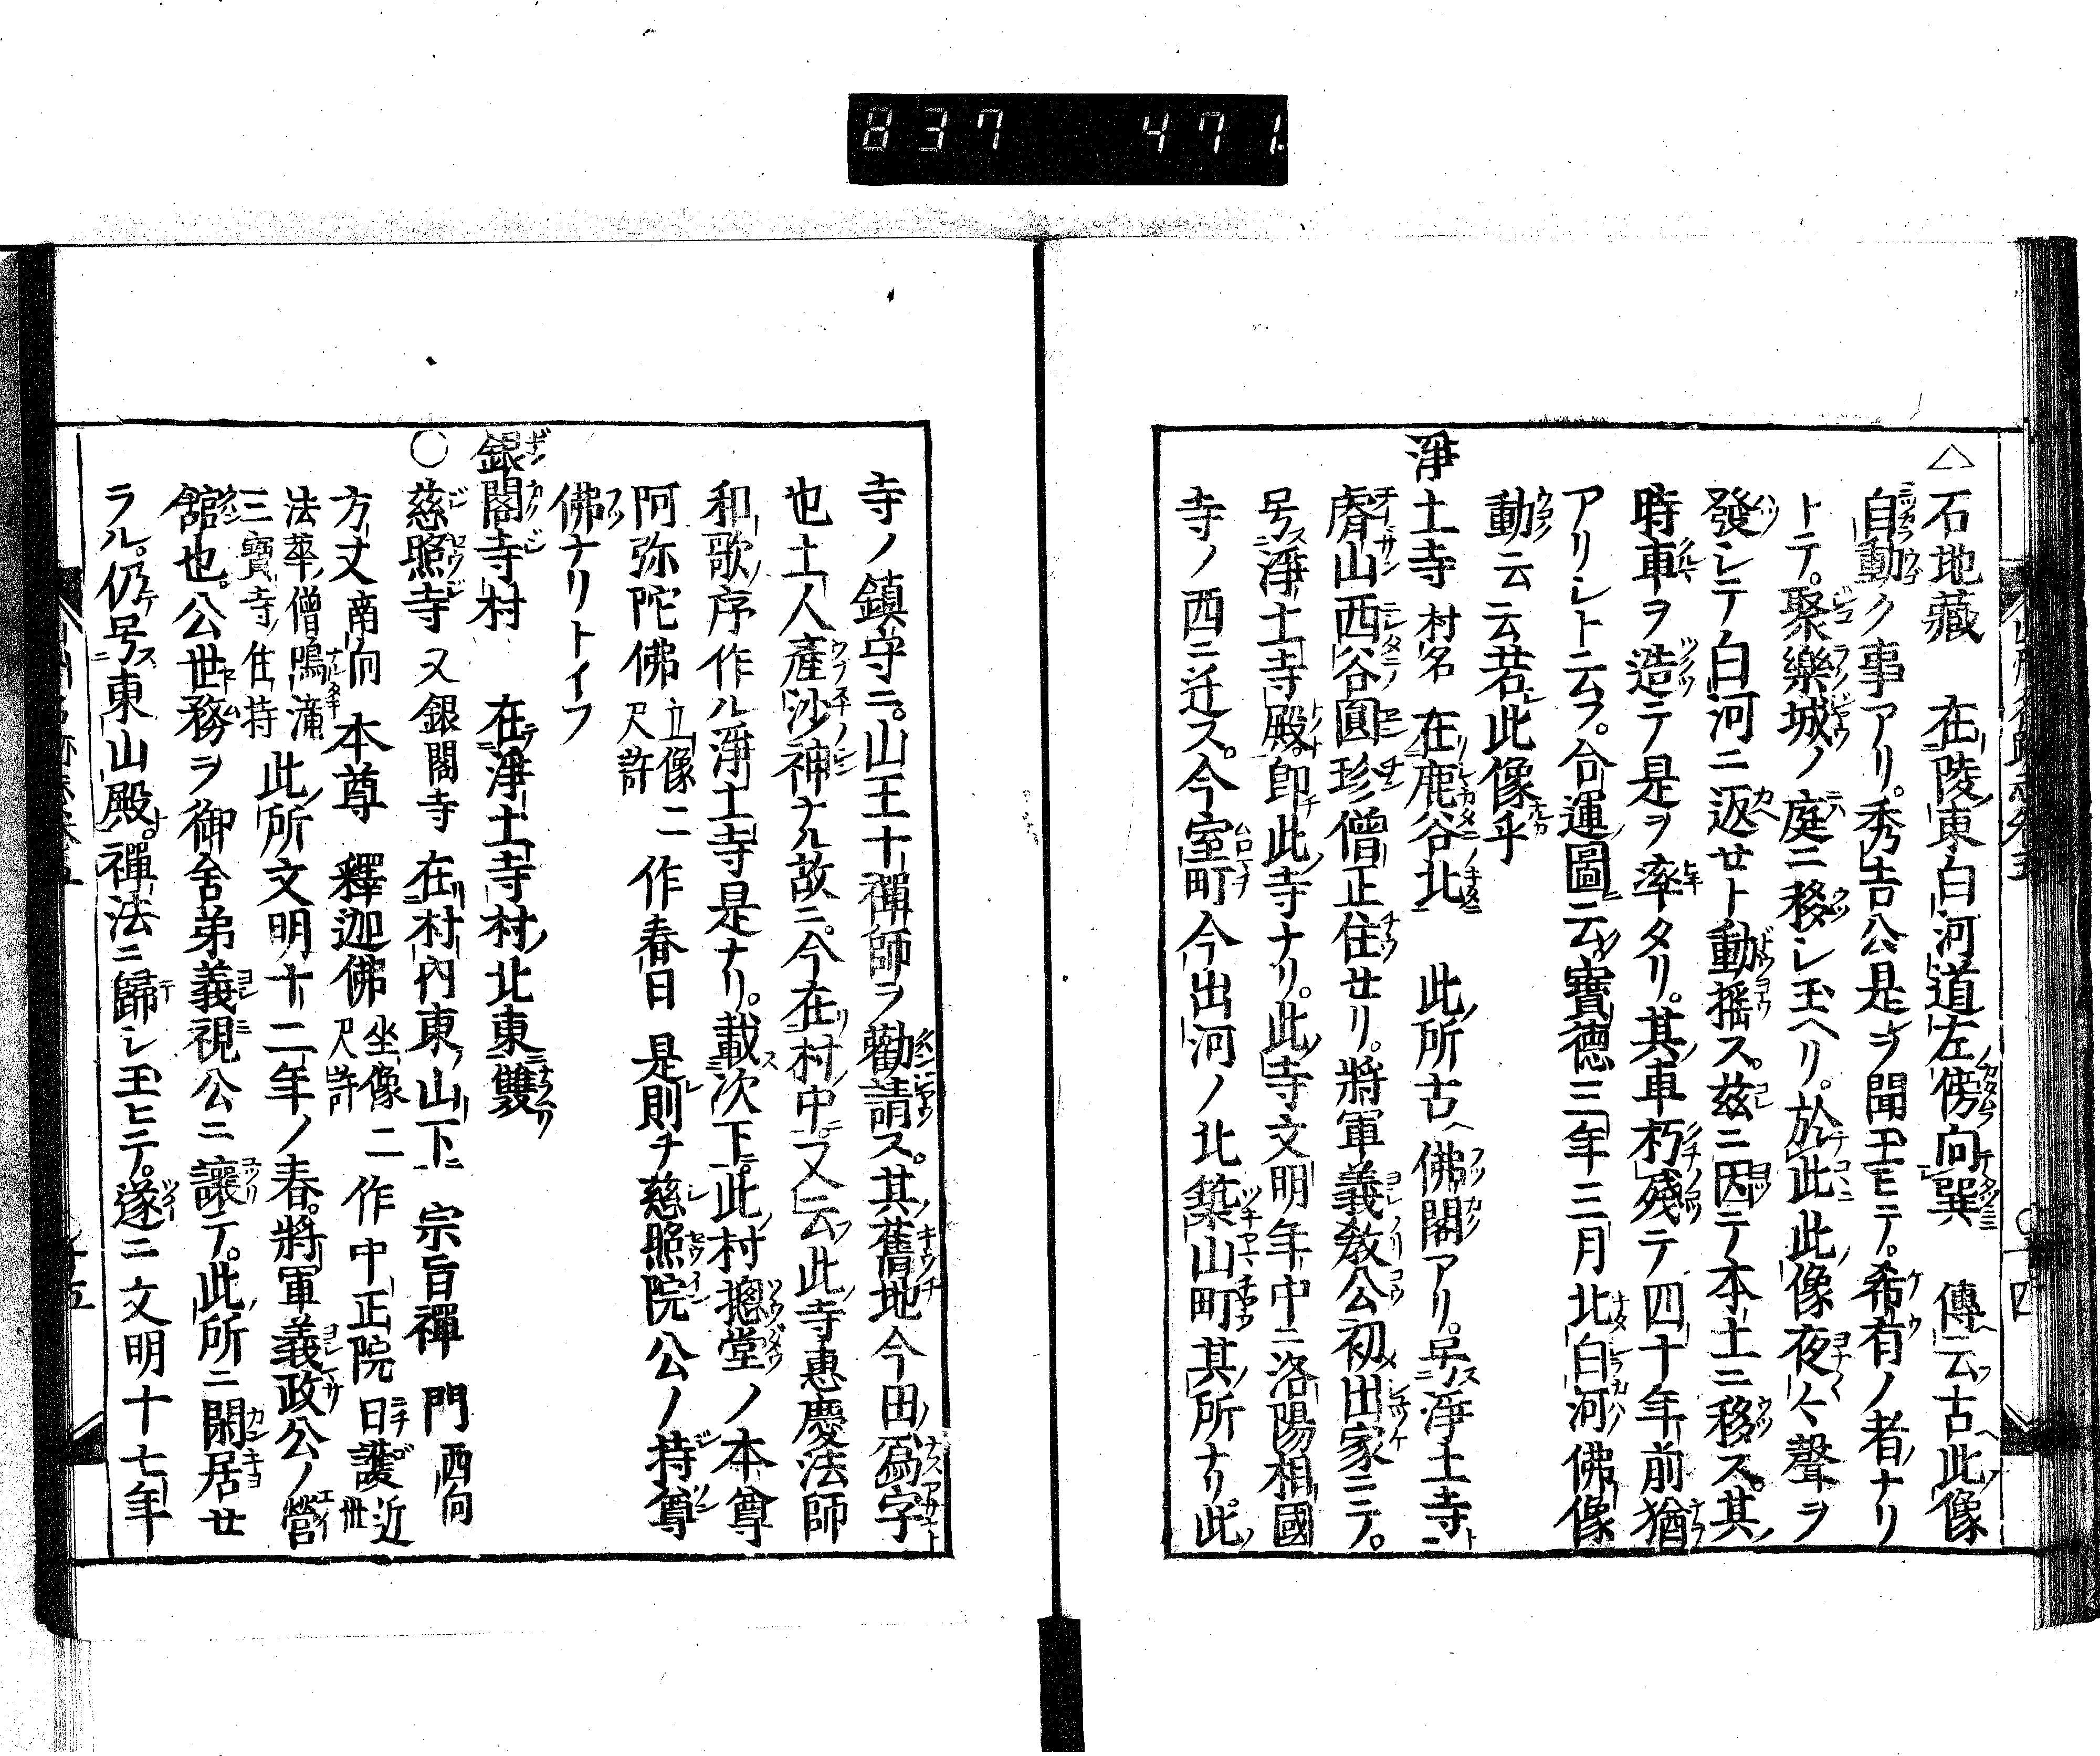 837 471.
△石地藏 在陵東白河道左傍向巽 傳云古此像
自動ク事アリ。秀吉公是ヲ聞玉ヒテ。希有ノ者ナリ
トテ。聚樂城ノ庭ニ移シ玉ヘリ。於此此像夜々聲ヲ
發シテ白河ニ返せト動揺ス。兹ニ因テ本土ニ移ス。其
時車ヲ造テ是ヲ率タリ。其車朽殘テ四十年前猶
アリシト云フ。合運圖云寶德三年三月北白河佛像
動云云若此像乎
淨土寺 村名 在鹿谷北 此所古佛閣アリ。号淨土寺
脊山西谷圓珍僧正住せリ。將軍義教公初出家ニテ。
号淨土寺殿。即此寺ナリ。此寺文明年中ニ洛陽相國
寺ノ西ニ迁ス。今室町今出河ノ北築山町其所ナリ。此
寺ノ鎮守ニ。山王十禪師ヲ勸請ス。其舊地今田爲字
也土人産沙神ナル故ニ。今在村中又云此寺惠慶法師
和歌序作ル淨土寺是ナリ。載次下。此村揔堂ノ本尊
阿弥陀佛 立像二尺許 作春日 是則チ慈照院公ノ持尊
佛ナリトイフ
銀閣寺村 在淨土寺村北東雙
○慈照寺 又銀閣寺 在村内東山下 宗旨禪 門 西向
方丈 南向 本尊 釋迦佛 坐像二尺許 作中正院日護 近世
法華僧鳴瀧三寳寺住持 此所文明十二年ノ春。將軍義政公ノ營
舘也。公世務ヲ御舍弟義視公ニ讓テ。此所ニ閑居せ
ラル。仍号東山殿。禪法ニ歸シ玉ヒテ。遂ニ文明十七年